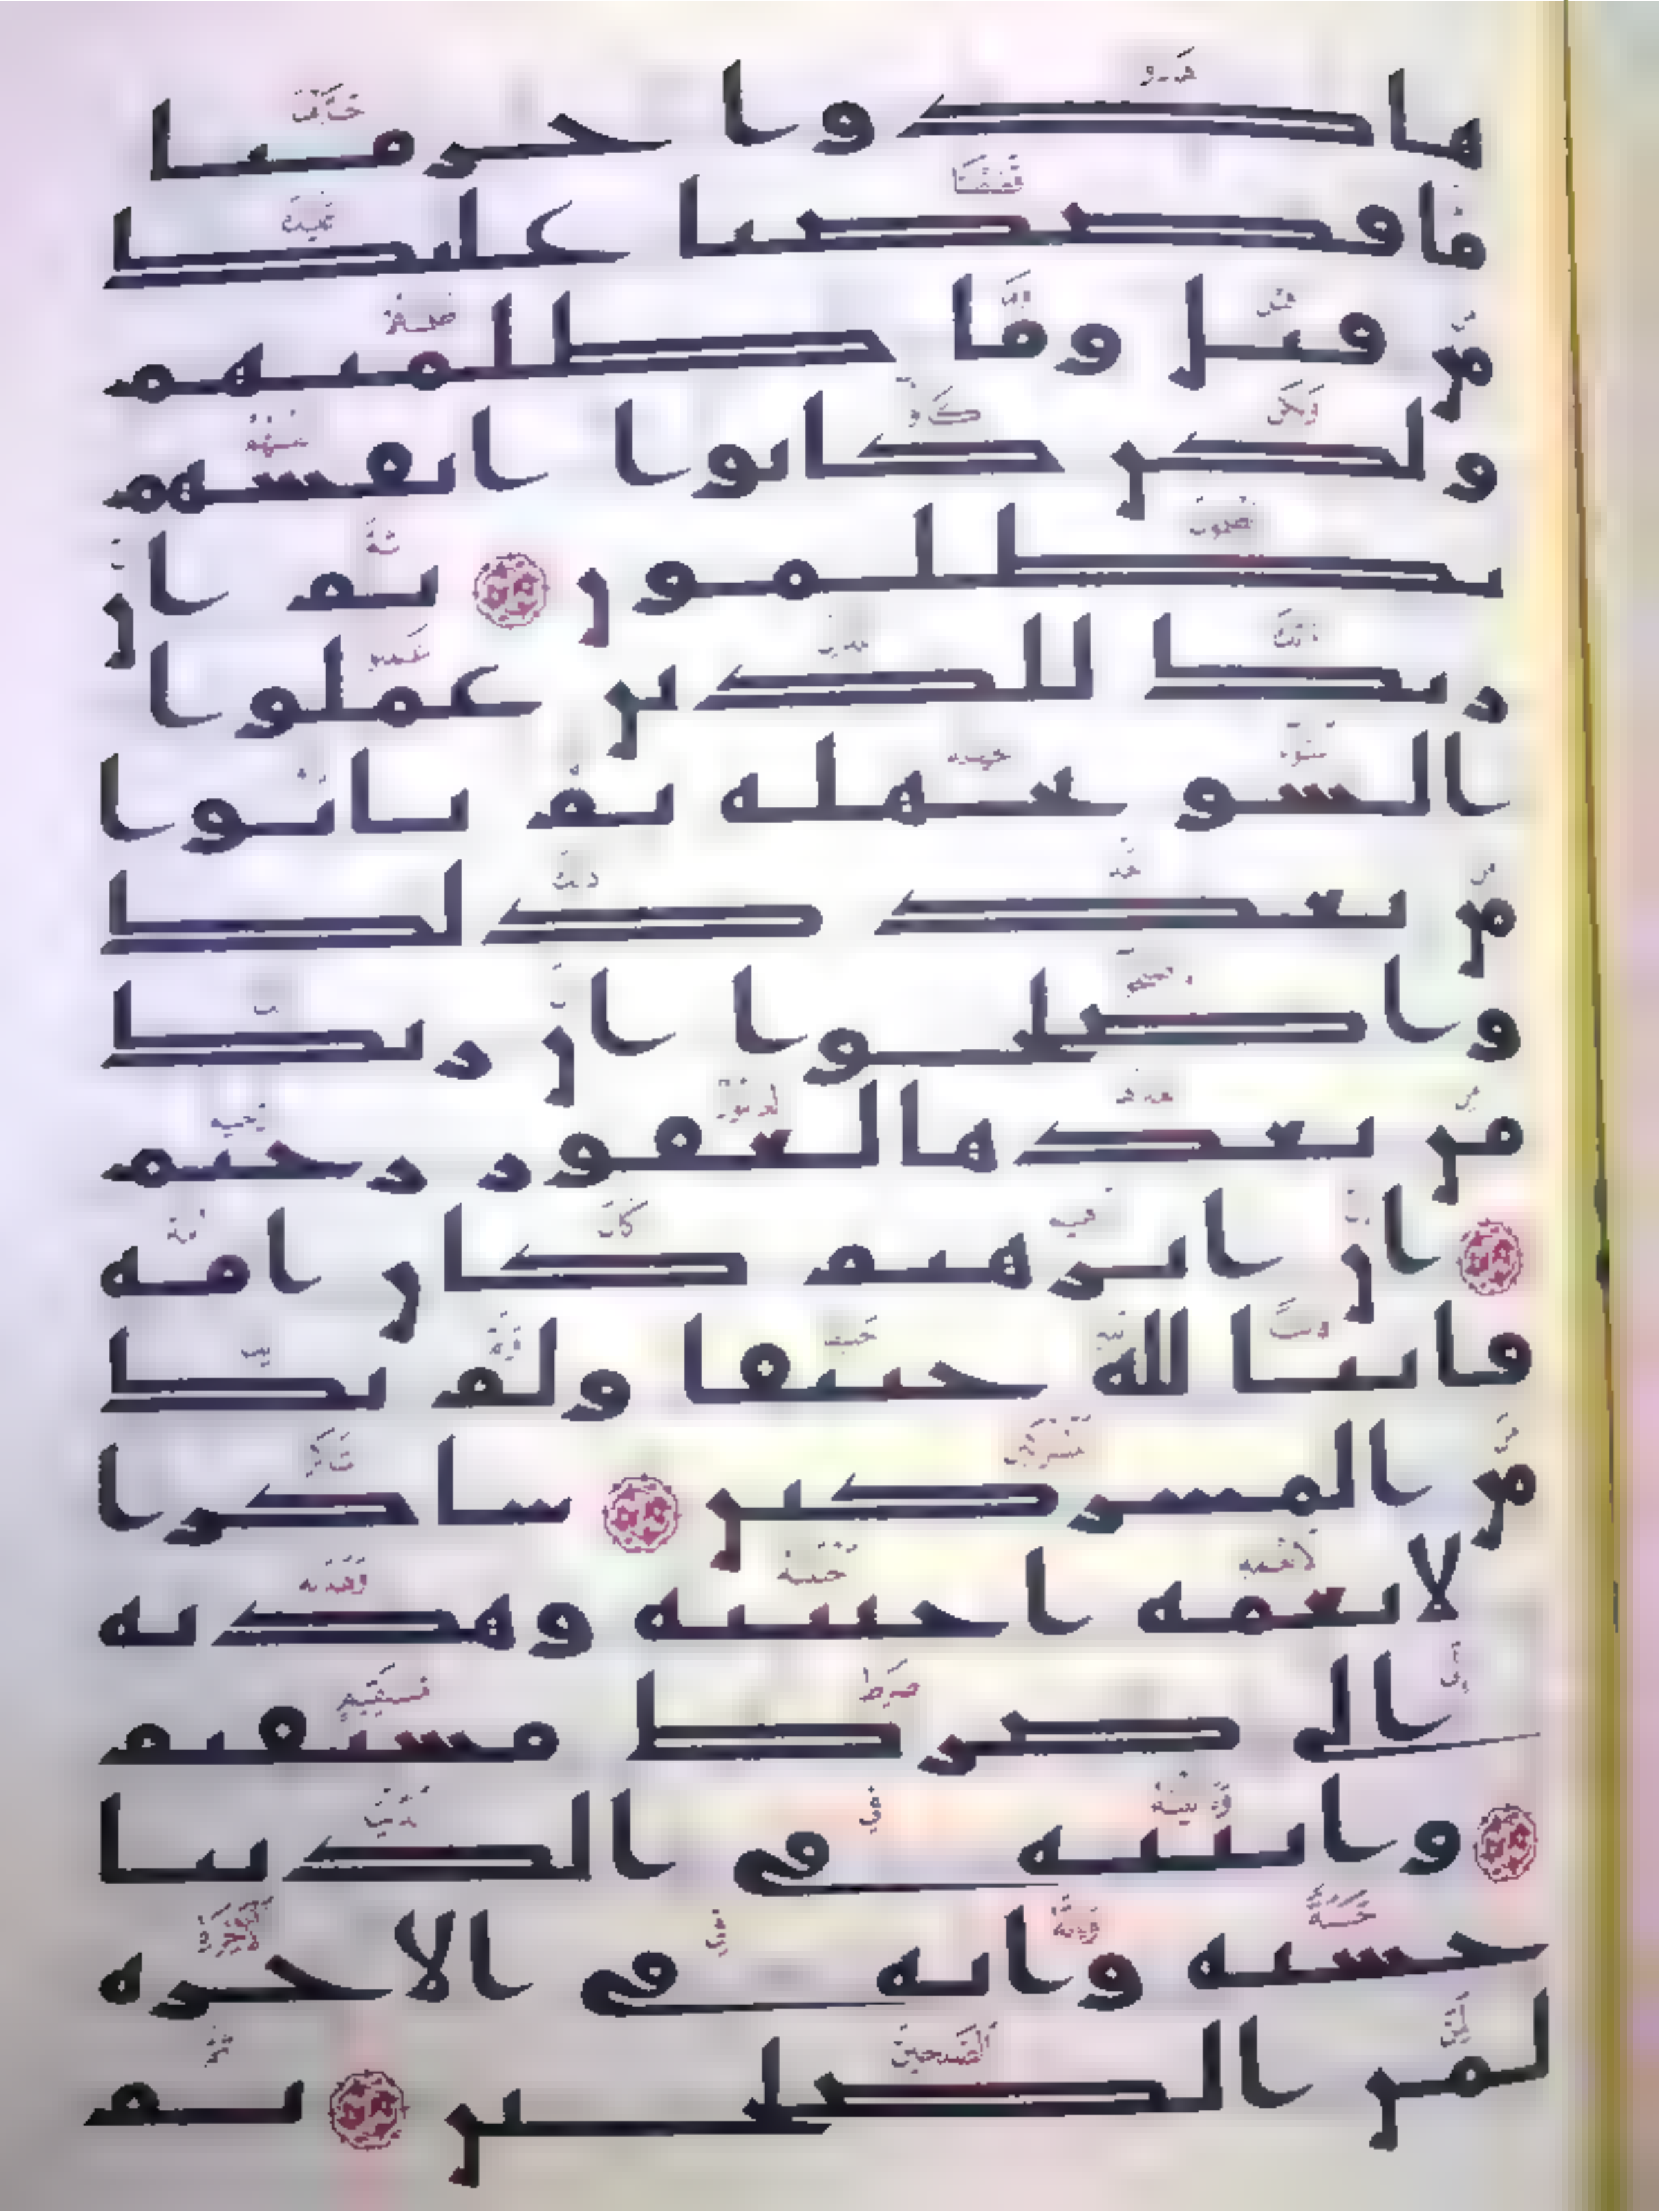 هادوا حرمنا
ما قصصنا عليك
من قبل وما ظلمنهم
ولكن كانوا انفسهم
يظلمون ۝ ثم ان
ربك للذين عملوا
السو بجهلة ثم تابوا
من بعد ذلك
واصلحوا ان ربك
من بعدها لغفور رحيم
۝ ان ابرهيم كان امة
قانتا لله حنيفا ولم يك
من المشركين ۝ شاكرا
لانعمه اجتبيه وهديه
الى صرط مستقيم
۝ واتينه في الدنيا
حسنة وانه في الاخرة
لمن الصلحين ۝ ثم